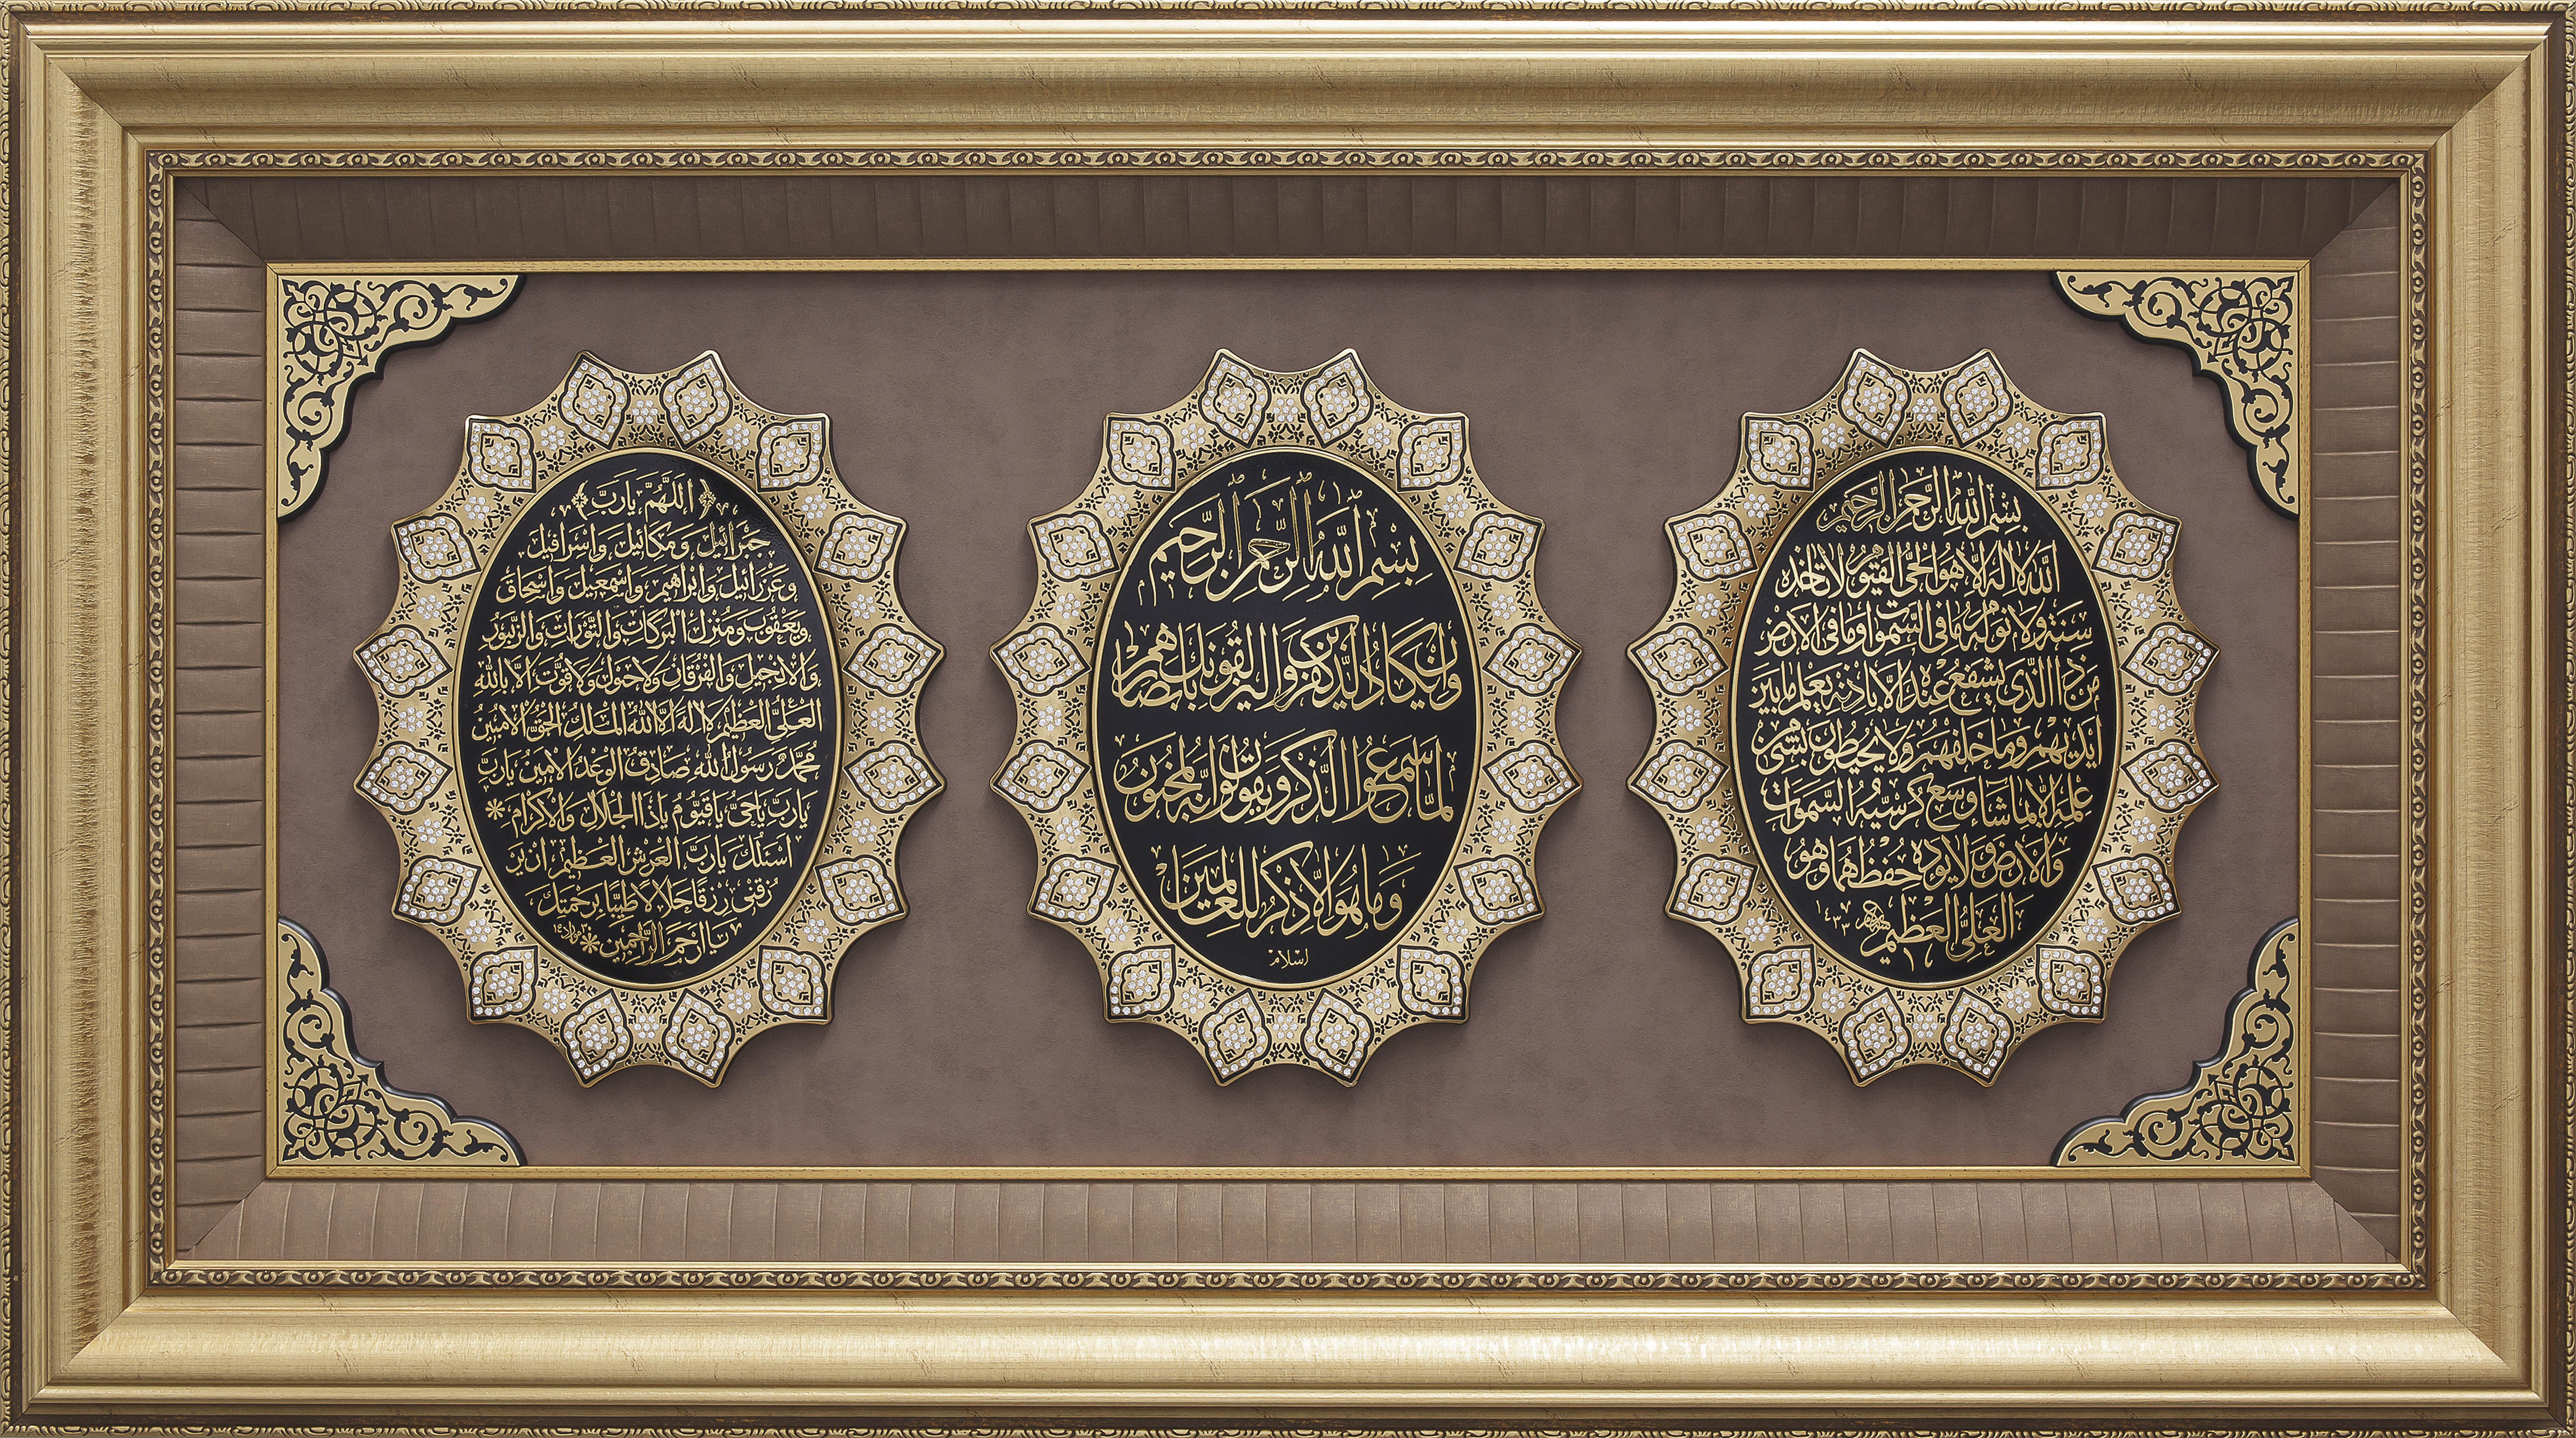 بسم الله الرحمن الرحيم
الله لا اله الا هو الحي القيوم لا تاخذه
سنة ولا نوم له ما في السموات وما في الارض
من ذا الذي يشفع عنده الا باذنه يعلم ما بين
ايديهم وما خلفهم ولا يحيطون بشئ من
علمه الا بما شاء وسع كرسيه السموات
والارض ولا يؤده حفظهما وهو
العلي العظيم
١٤٣٠
بِسْمِ اللهِ الرَّحْمٰنِ الرَّحِيمِ
وان يكاد الذين كفروا ليزلقونك بابصارهم
لما سمعوا الذكر ويقولون انه لمجنون
وما هو الا ذكر للعالمين
اسلام
﴿ اللّٰهُمَّ يَارَبَّ ﴾
جبرائيل وميكائيل واسرافيل
وعزرائيل وابراهيم واسمعيل واسحاق
ويعقوب ومنزل البركات والتورات والزبور
والانجيل والفرقان ولا حول ولا قوت الا بالله
العلي العظيم لا اله الا الله الملك الحق المبين
محمد رسول الله صادق الوعد الامين يارب
يارب ياحي ياقيوم ياذا الجلال والاكرام *
اسئلك يارب العرش العظيم ان ير
زقني رزقا حلالا طيبا برحمتك
يا ارحم الراحمين *